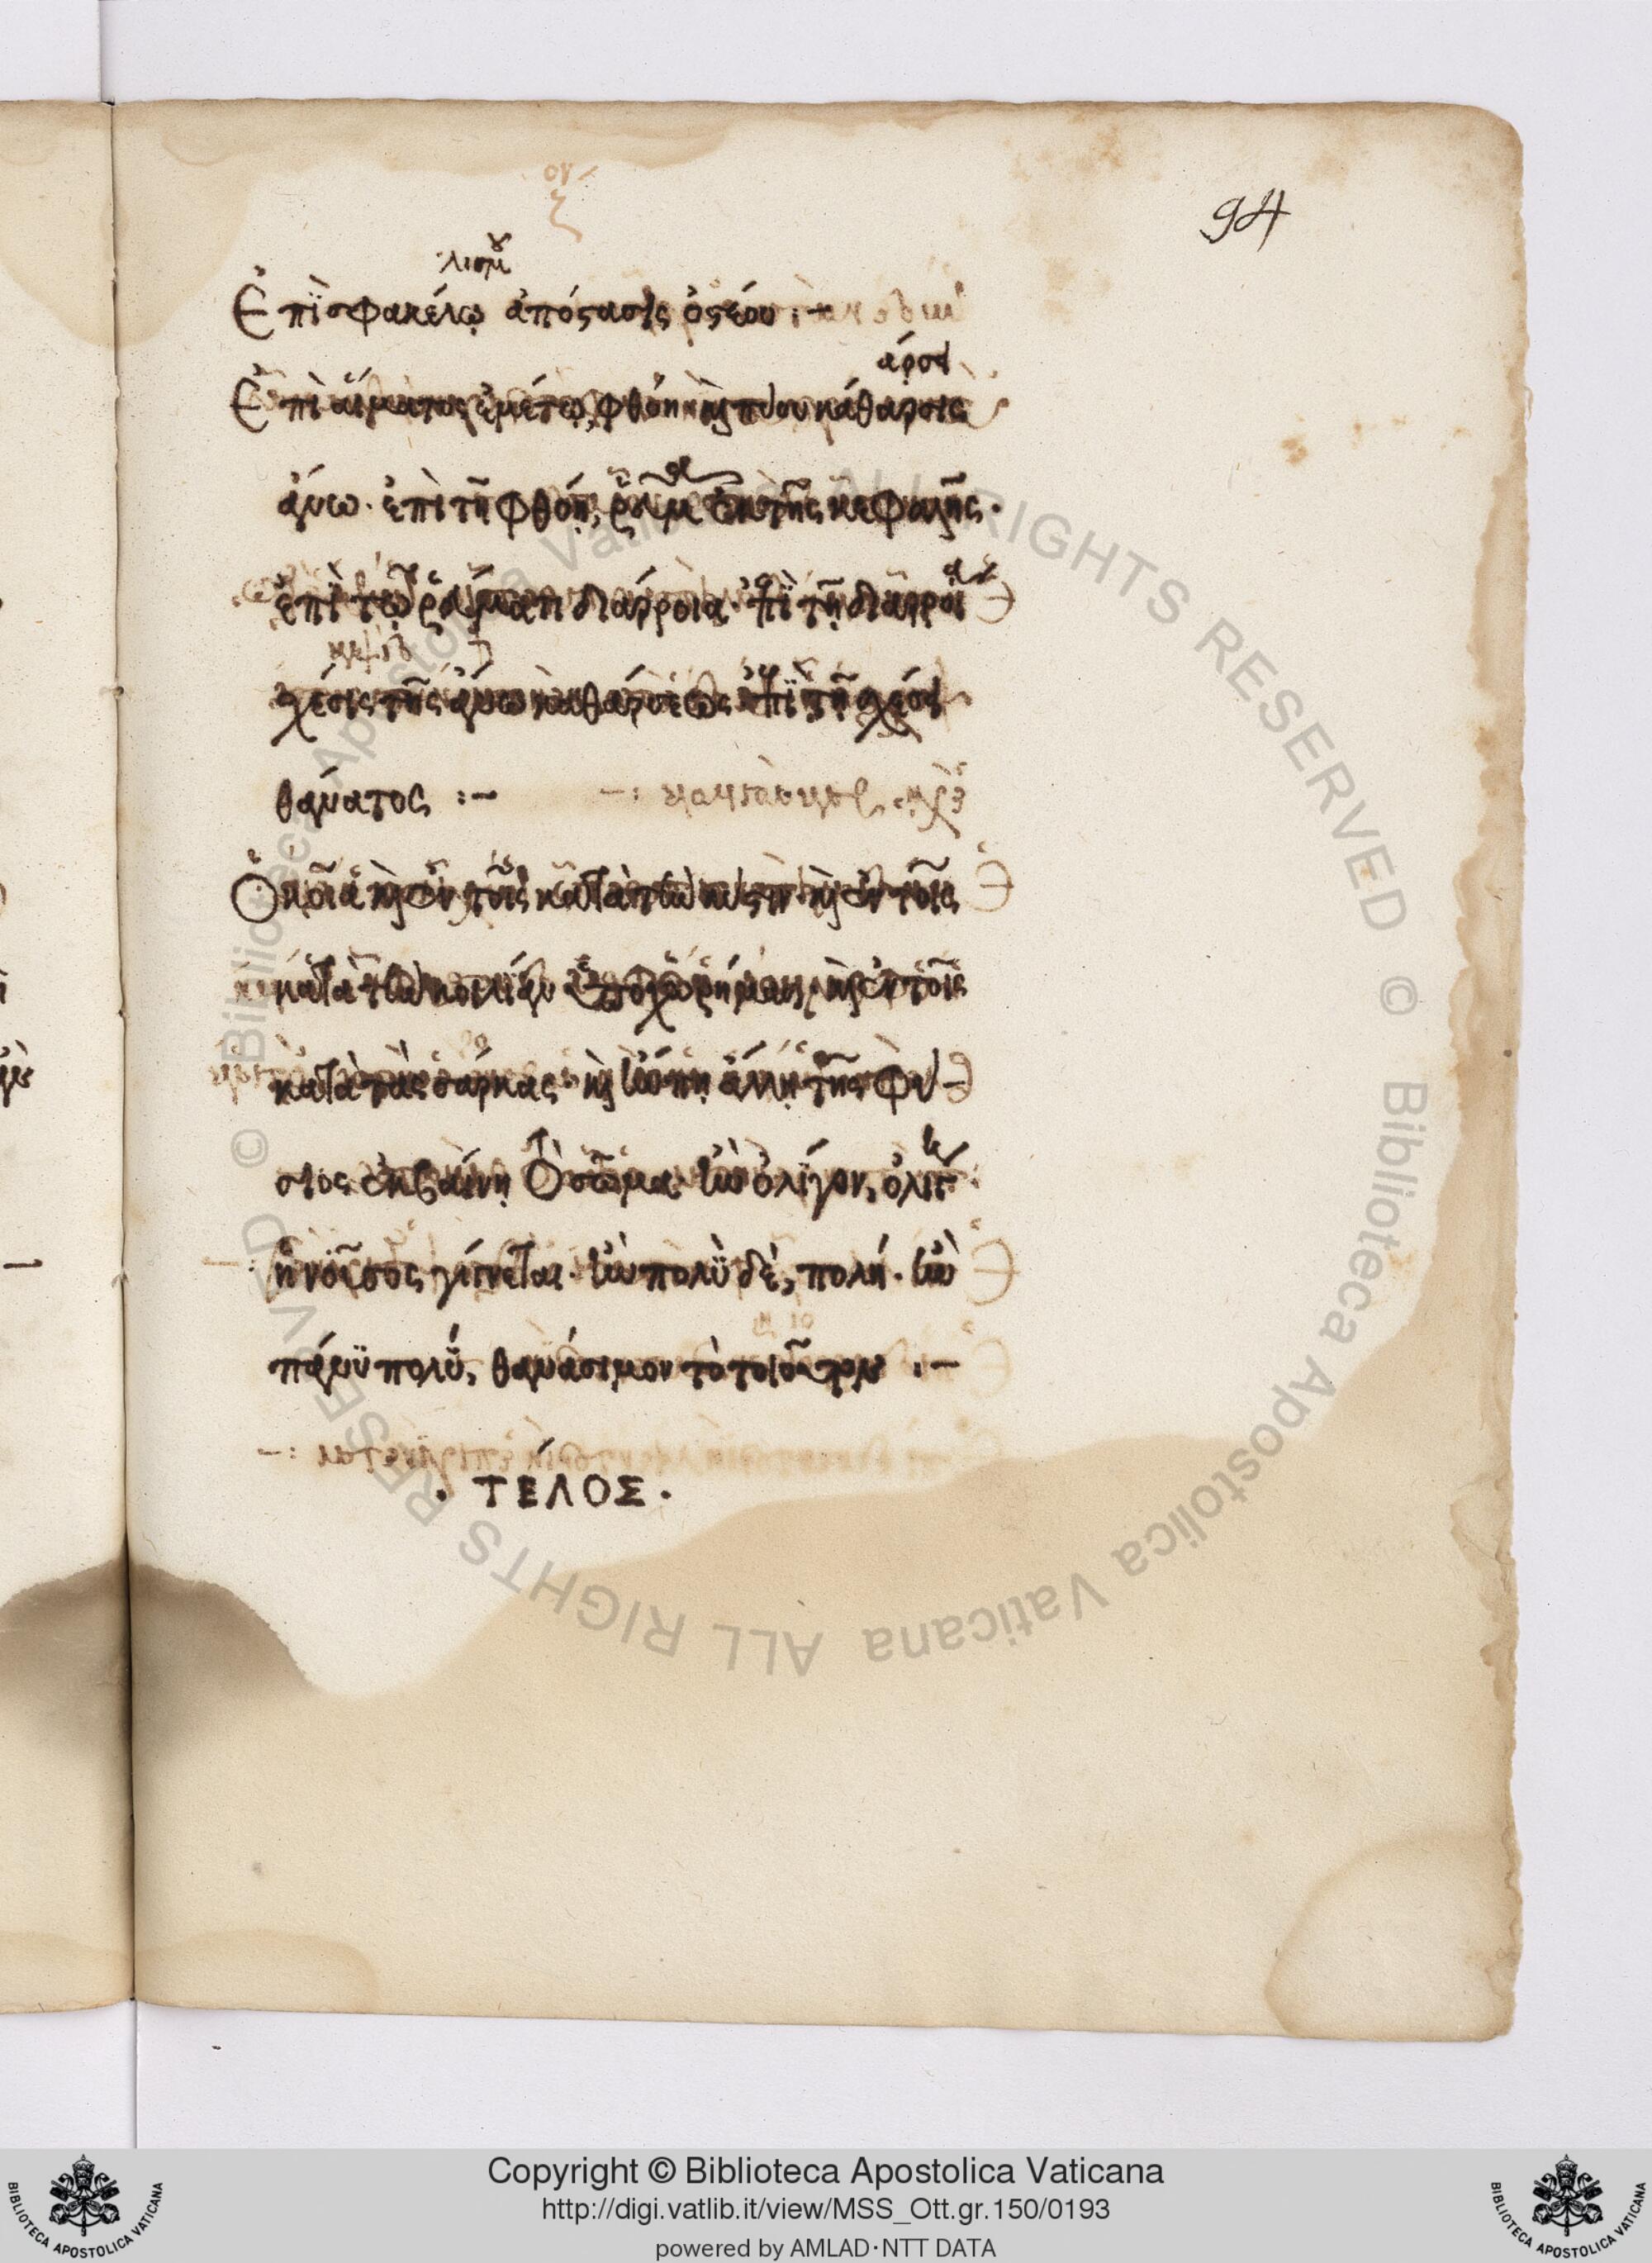 94
λισμοῦ
Ἐπὶ σφακέλῳ ἀπόστασις ὀστέου :-
άρσει
Ἐπὶ αἵματος ἐμέτῳ, φθόη καὶ πύου κάθαρσις
ἄνω· ἐπὶ τῆ φθόῃ, ῥεῦμα ἐκ τῆς κεφαλῆς·
ἐπὶ τῷ ῥεύματι διάρροια· ἐπὶ τῇ διαρροί
χέσις τῆς ἄνω καθάρσεως ἐπὶ τῇ χέσει
θάνατος :-
Ὁκοῖα καὶ ἐν τοῖς κατὰ τὴν κύστιν· καὶ ἐν τοῖς
κατὰ τὴν κοιλίαν ὑποχωρήμασι, καὶ ἐν τοῖς
κατὰ τὰς σάρκας· καὶ ἤν πῃ ἄλλῃ τῆς φύ-
σιος ἐκβαίνῃ τὸ σῶμα· ἢν ὀλίγον, ὀλίγη
ἡ νοῦσος γίνεται· ἢν πολὺ δὲ, πολή· ἢν
πάνυ πολύ, θανάσιμον τὸ τοιοῦτον :-
· ΤΈΛΟΣ ·
Copyright © Biblioteca Apostolica Vaticana
http://digi.vatlib.it/view/MSS_Ott.gr.150/0193
powered by AMLAD·NTT DATA
BIBLIOTECA APOSTOLICA VATICANA
BIBLIOTECA APOSTOLICA VATICANA
© Biblioteca Apostolica Vaticana ALL RIGHTS RESERVED © Biblioteca Apostolica Vaticana ALL RIGHTS RESERVED